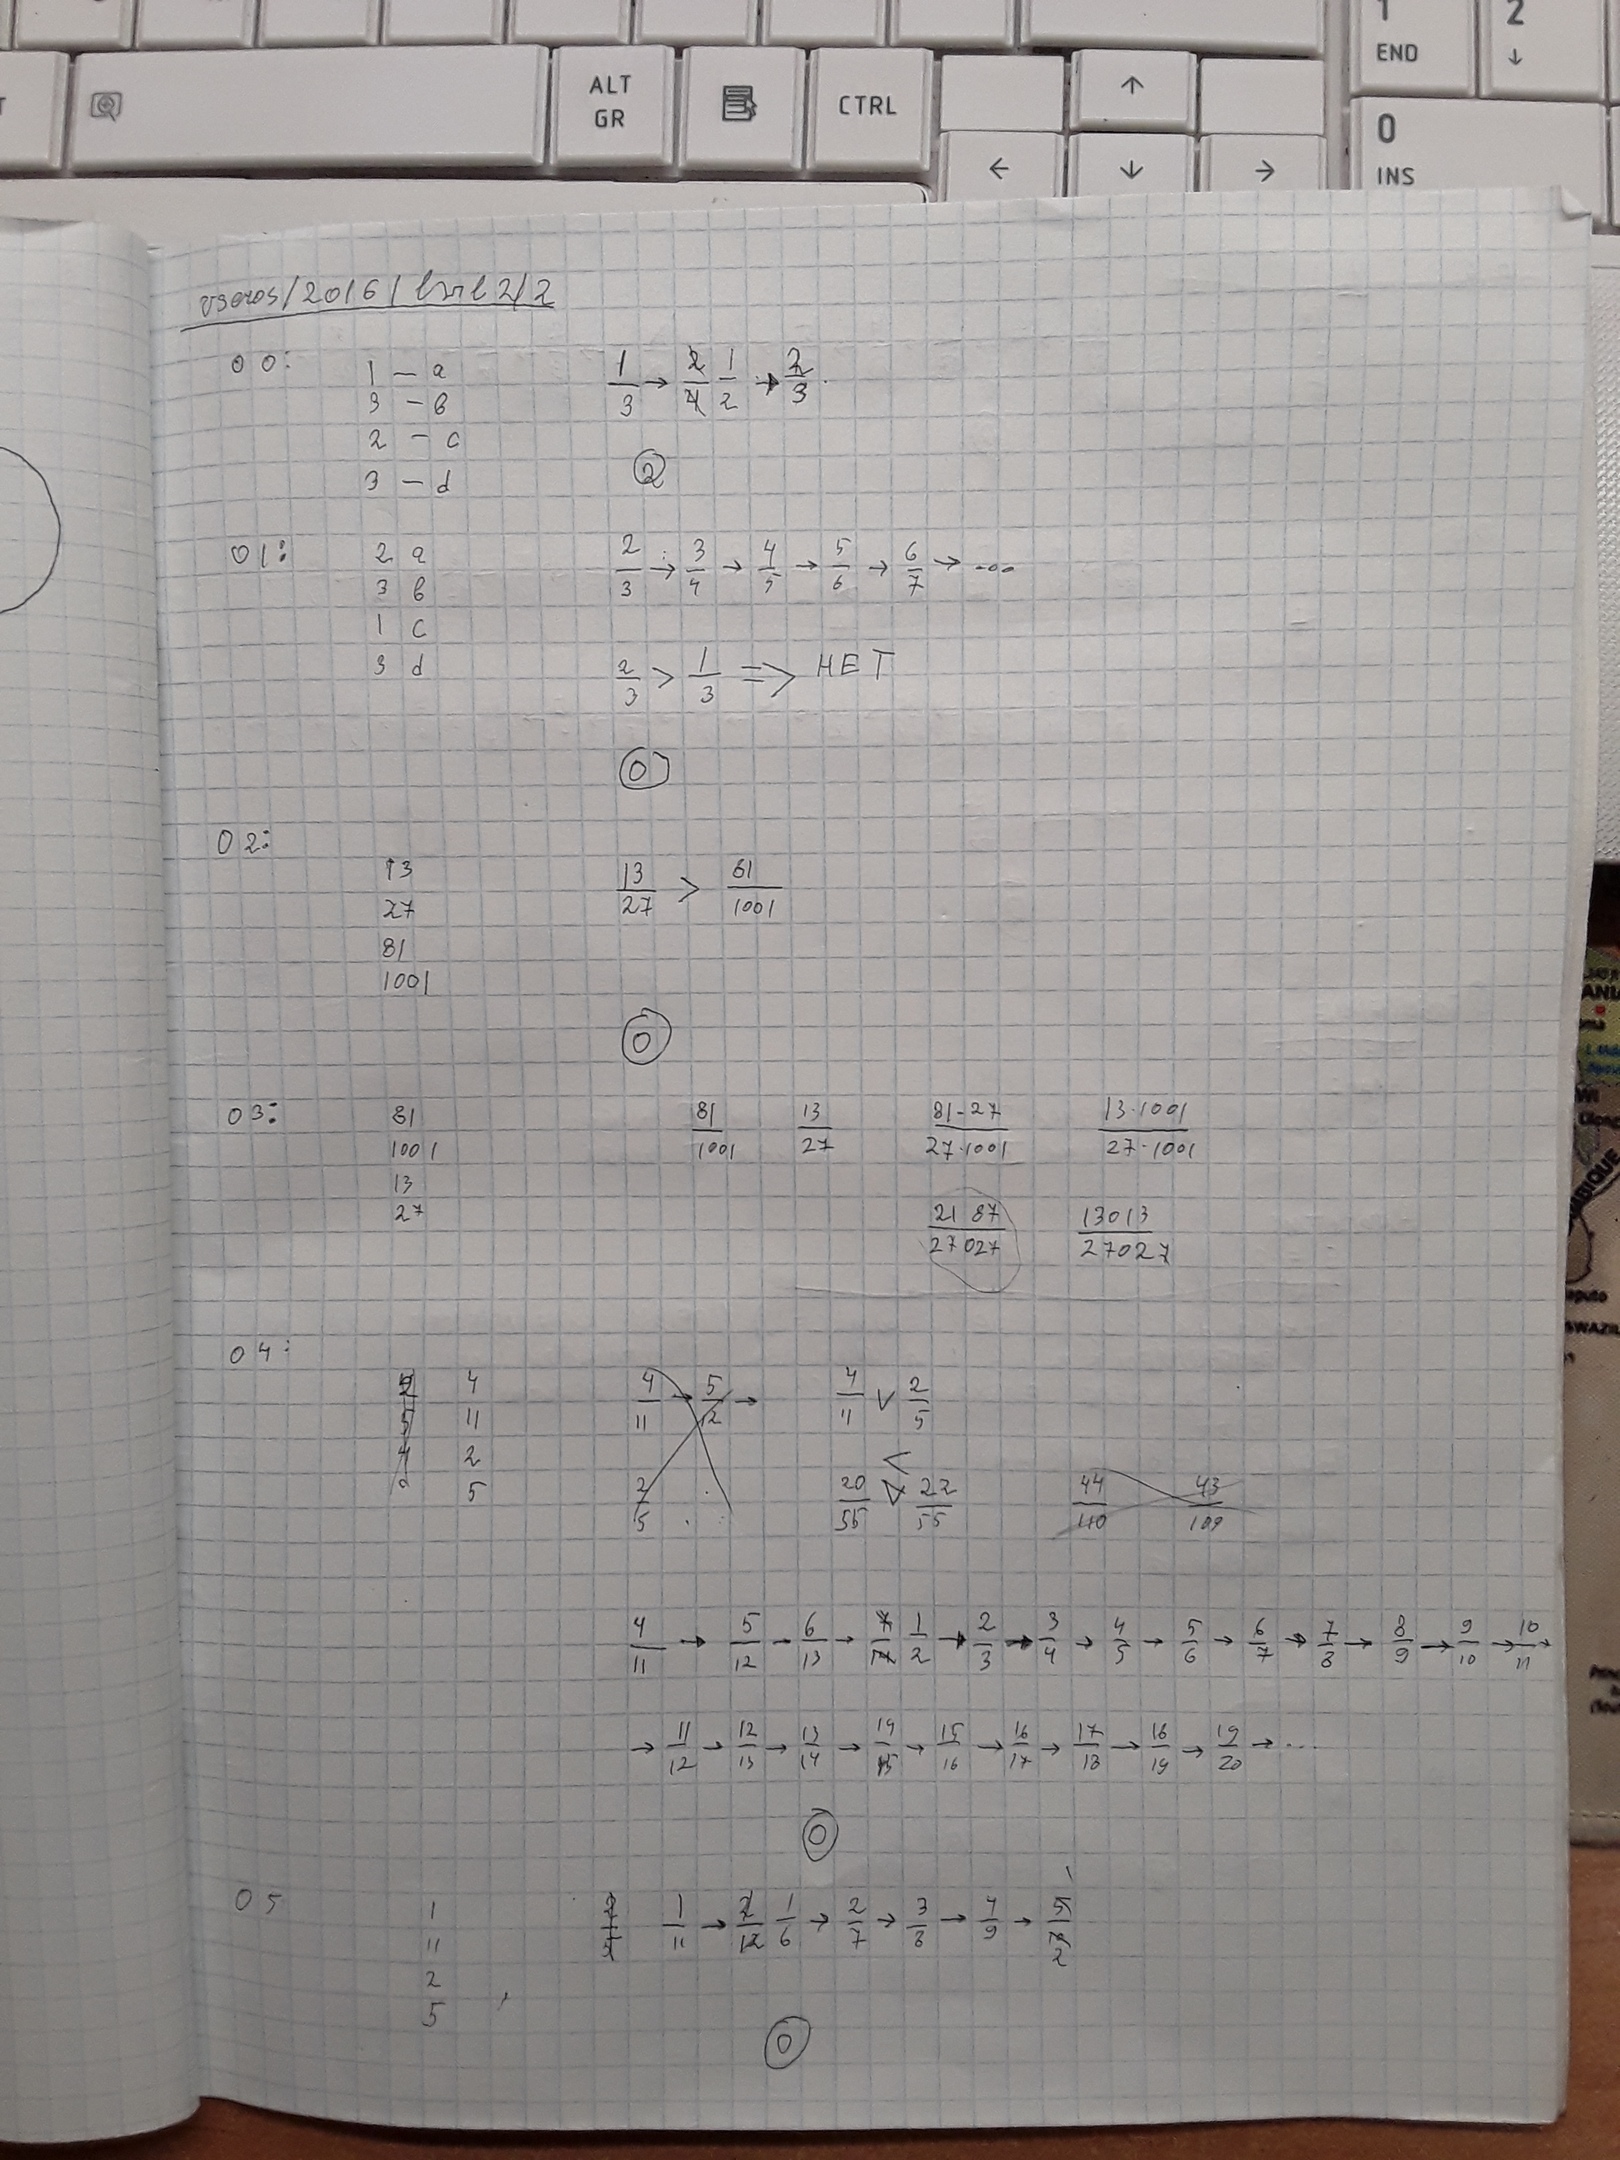 1
END
2
↓
ALT
GR
CTRL
↑
0
INS
← ↓ →
vseros/2016/lvl2/2
00:
1 — a
3 — b
2 — c
3 — d
1/3 → 2/4 1/2 → 2/3
2
01:
2 a
3 b
1 c
3 d
2/3 → 3/4 → 4/5 → 5/6 → 6/7 → ...
2/3 > 1/3 => НЕТ
0
02:
13
27
81
1001
13/27 > 81/1001
0
03:
81
1001
13
27
81/1001 13/27 81·27/27·1001 13·1001/27·1001
2187/27027 13013/27027
04:
4
11
2
5
4/11 → 5/12 →
2/5
4/11 V 2/5
<
20/55 V 22/55
44/110 43/109
4/11 → 5/12 → 6/13 → 7/14 1/2 → 2/3 → 3/4 → 4/5 → 5/6 → 6/7 → 7/8 → 8/9 → 9/10 → 10/11 →
→ 11/12 → 12/13 → 13/14 → 14/15 → 15/16 → 16/17 → 17/18 → 18/19 → 19/20 → ...
0
05
1
11
2
5
2/5 1/11 → 2/12 1/6 → 2/7 → 3/8 → 4/9 → 5/10 1/2
0